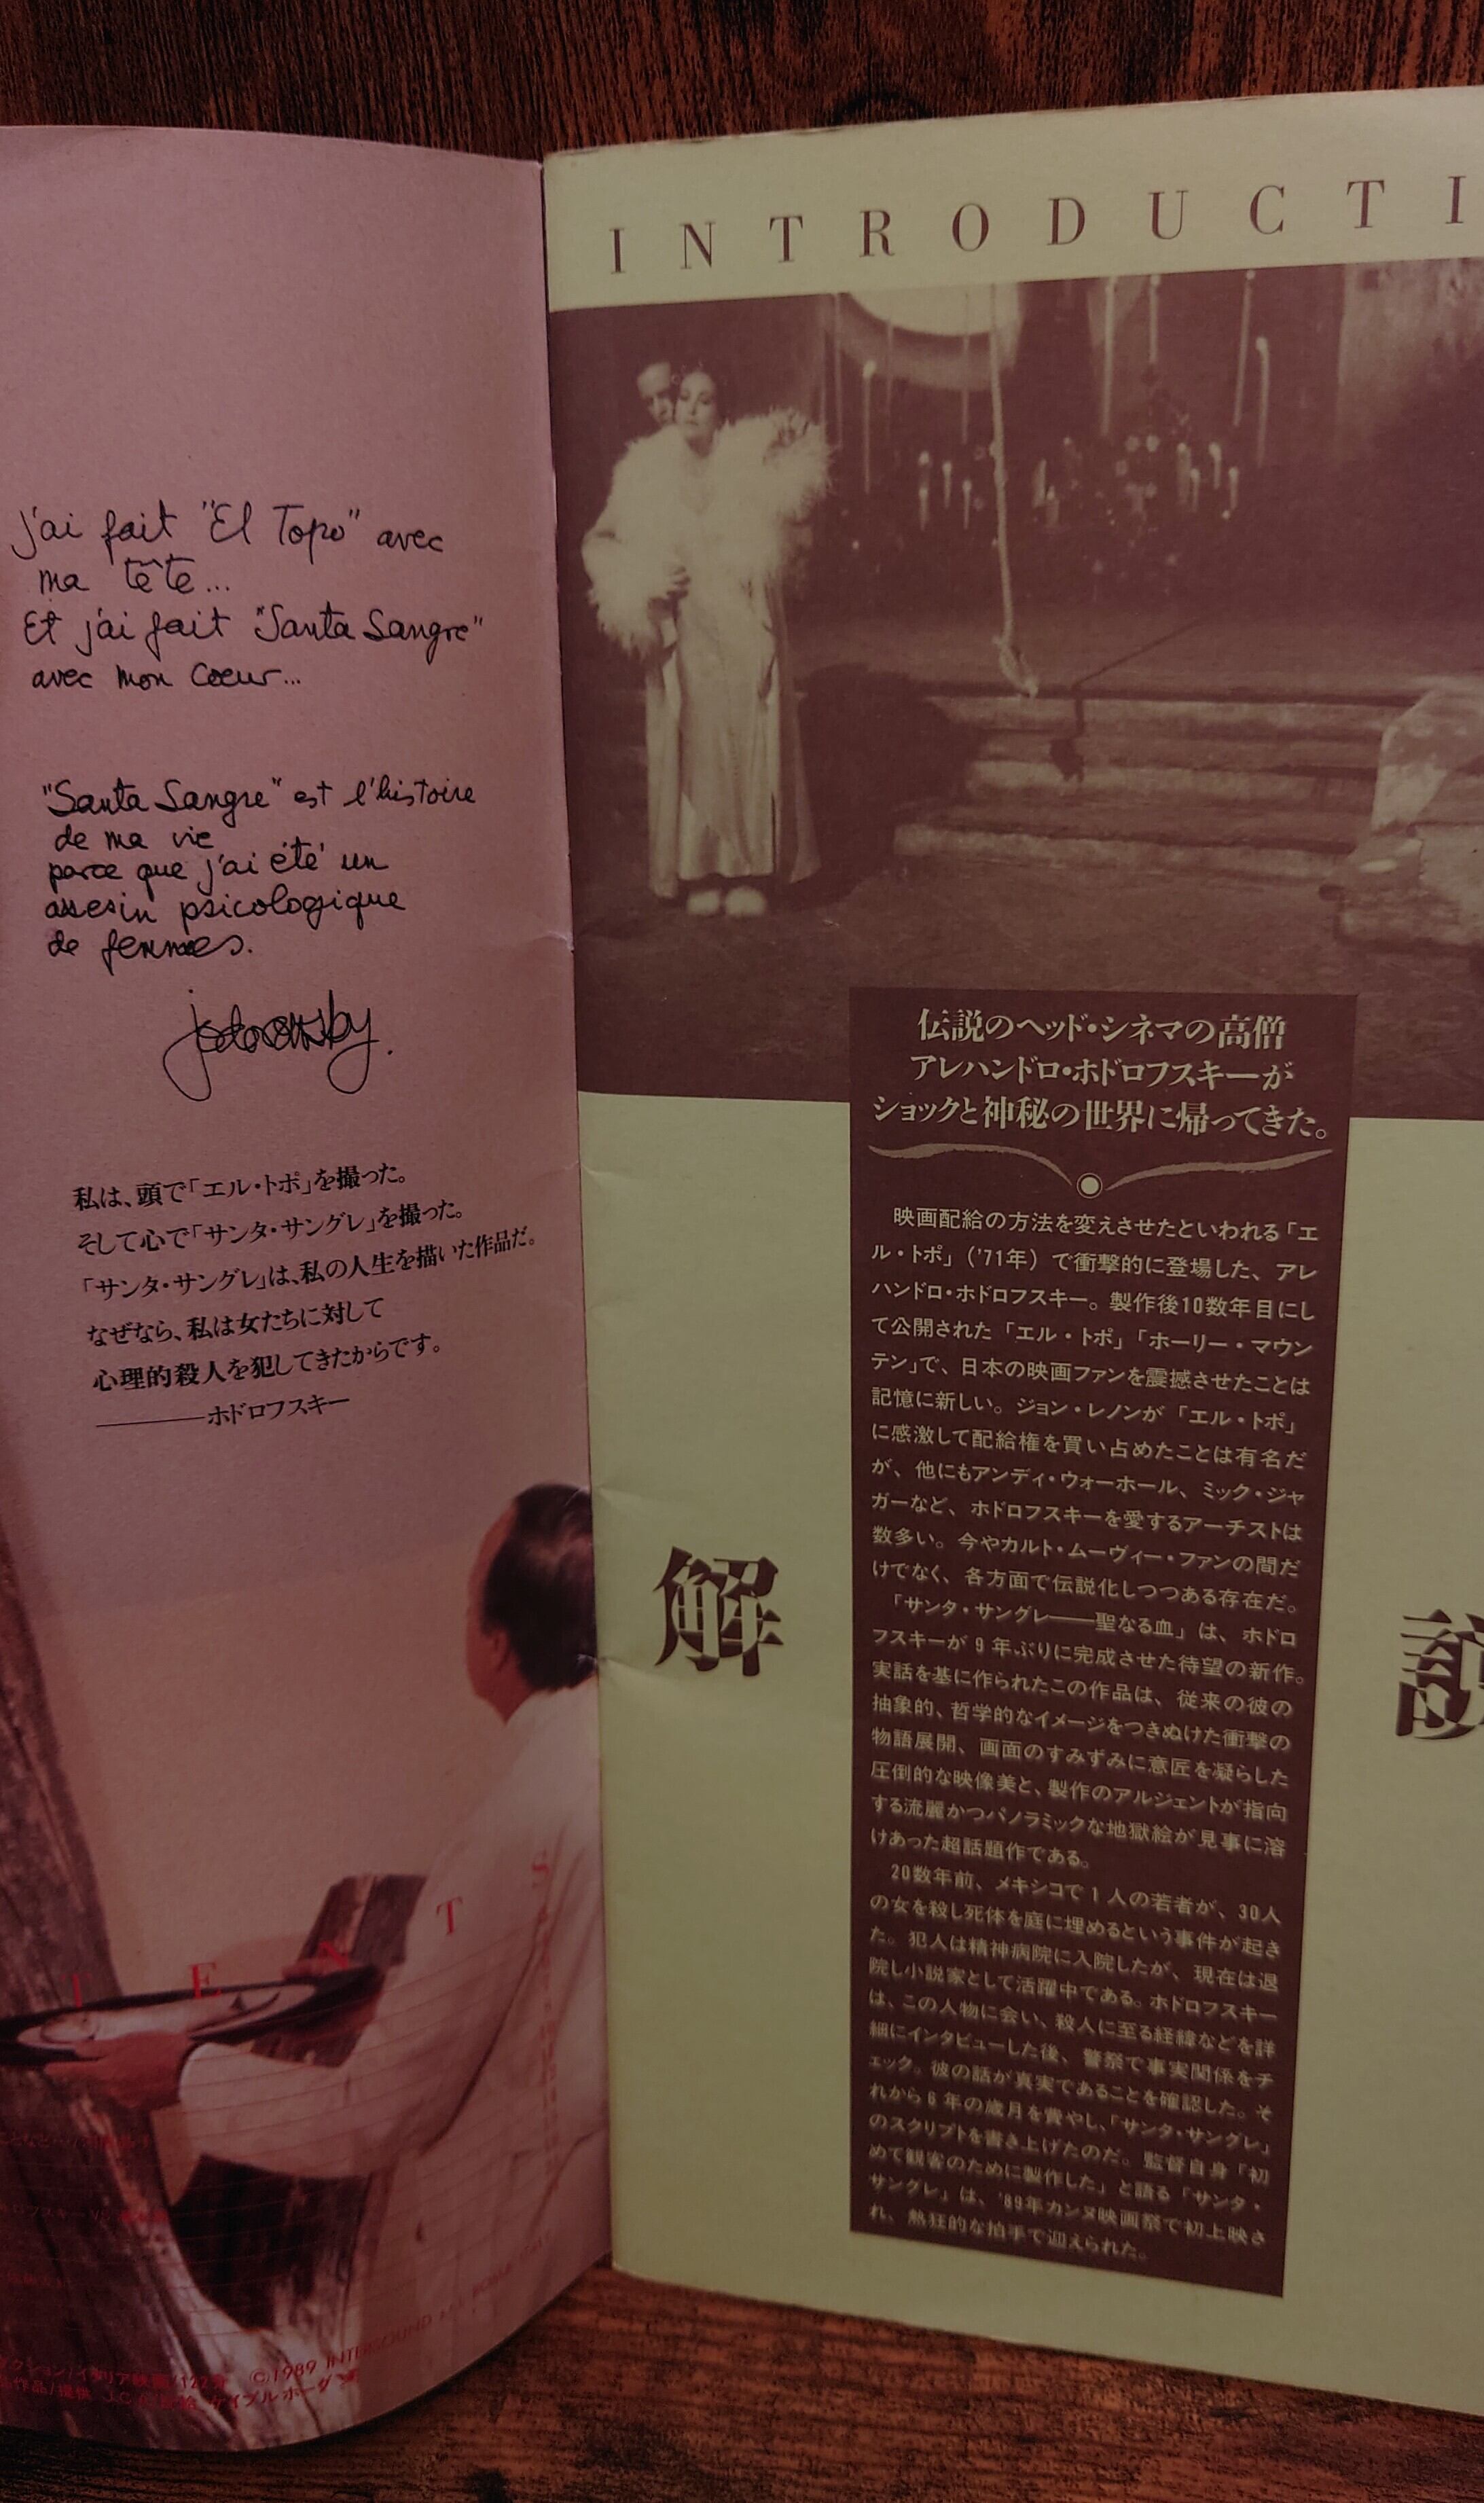 j'ai fait "El Topo" avec
ma tête...
Et j'ai fait "Santa Sangre"
avec mon coeur...
"Santa Sangre" est l'histoire
de ma vie
parce que j'ai été un
assesin psicologique
de femmes.
jodorowsky.
私は、頭で「エル・トポ」を撮った。
そして心で「サンタ・サングレ」を撮った。
「サンタ・サングレ」は、私の人生を描いた作品だ。
なぜなら、私は女たちに対して
心理的殺人を犯してきたからです。
————ホドロフスキー
T E N T S
クション/イタリア映画/122分 ©1989 INTERSOUND
INTRODUCTI
伝説のヘッド・シネマの高僧
アレハンドロ・ホドロフスキーが
ショックと神秘の世界に帰ってきた。
映画配給の方法を変えさせたといわれる「エ
ル・トポ」('71年)で衝撃的に登場した、アレ
ハンドロ・ホドロフスキー。製作後10数年目にし
て公開された「エル・トポ」「ホーリー・マウン
テン」で、日本の映画ファンを震撼させたことは
記憶に新しい。ジョン・レノンが「エル・トポ」
に感激して配給権を買い占めたことは有名だ
が、他にもアンディ・ウォーホール、ミック・ジャ
ガーなど、ホドロフスキーを愛するアーチストは
数多い。今やカルト・ムーヴィー・ファンの間だ
けでなく、各方面で伝説化しつつある存在だ。
「サンタ・サングレ——聖なる血」は、ホドロ
フスキーが9年ぶりに完成させた待望の新作。
実話を基に作られたこの作品は、従来の彼の
抽象的、哲学的なイメージをつきぬけた衝撃の
物語展開、画面のすみずみに意匠を凝らした
圧倒的な映像美と、製作のアルジェントが指向
する流麗かつパノラミックな地獄絵が見事に溶
けあった超話題作である。
20数年前、メキシコで1人の若者が、30人
の女を殺し死体を庭に埋めるという事件が起き
た。犯人は精神病院に入院したが、現在は退
院し小説家として活躍中である。ホドロフスキー
は、この人物に会い、殺人に至る経緯などを詳
細にインタビューした後、警察で事実関係をチ
ェック。彼の話が真実であることを確認した。そ
れから6年の歳月を費やし、「サンタ・サングレ」
のスクリプトを書き上げたのだ。監督自身「初
めて観客のために製作した」と語る「サンタ・
サングレ」は、'89年カンヌ映画祭で初上映さ
れ、熱狂的な拍手で迎えられた。
解 説